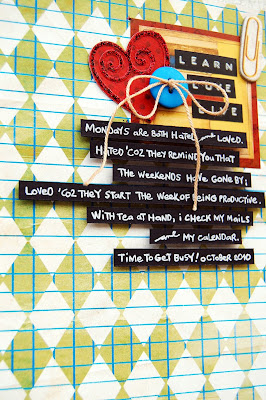 LEARN
LOVE
LIVE
MONDAYS ARE BOTH HATED and LOVED.
HATED 'COZ THEY REMIND YOU THAT
THE WEEKENDS HAVE GONE BY;
LOVED 'COZ THEY START THE WEEK OF BEING PRODUCTIVE.
WITH TEA AT HAND, i CHECK MY MAILS
and MY CALENDAR.
TIME TO GET BUSY! OCTOBER 2010